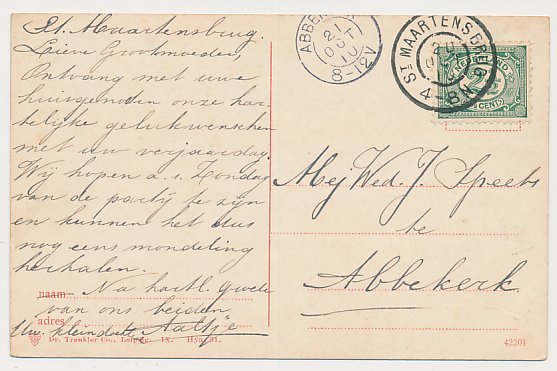 St. Maartensbrug.
Lieve Grootmoeder,
Ontvang met uwe
huisgenooten onze har-
telijke gelukwenschen
met uw verjaardag.
Wij hopen a.s. Zondag
van de partij te zijn
en kunnen het dus
nog eens mondeling
herhalen.
naam: Na hartl. groete
van ons beiden
adres:
Uw kleindochter Aaltje
Dr. Trenkler Co., Leipzig. IX. Hya. 31.
ABBE
21
OCT
10
8-12V
ST MAARTENSBRUG
20
4-8N
NEDERLAND
2½
CENT
Mej Wed. J Speets
te
Abbekerk
42201